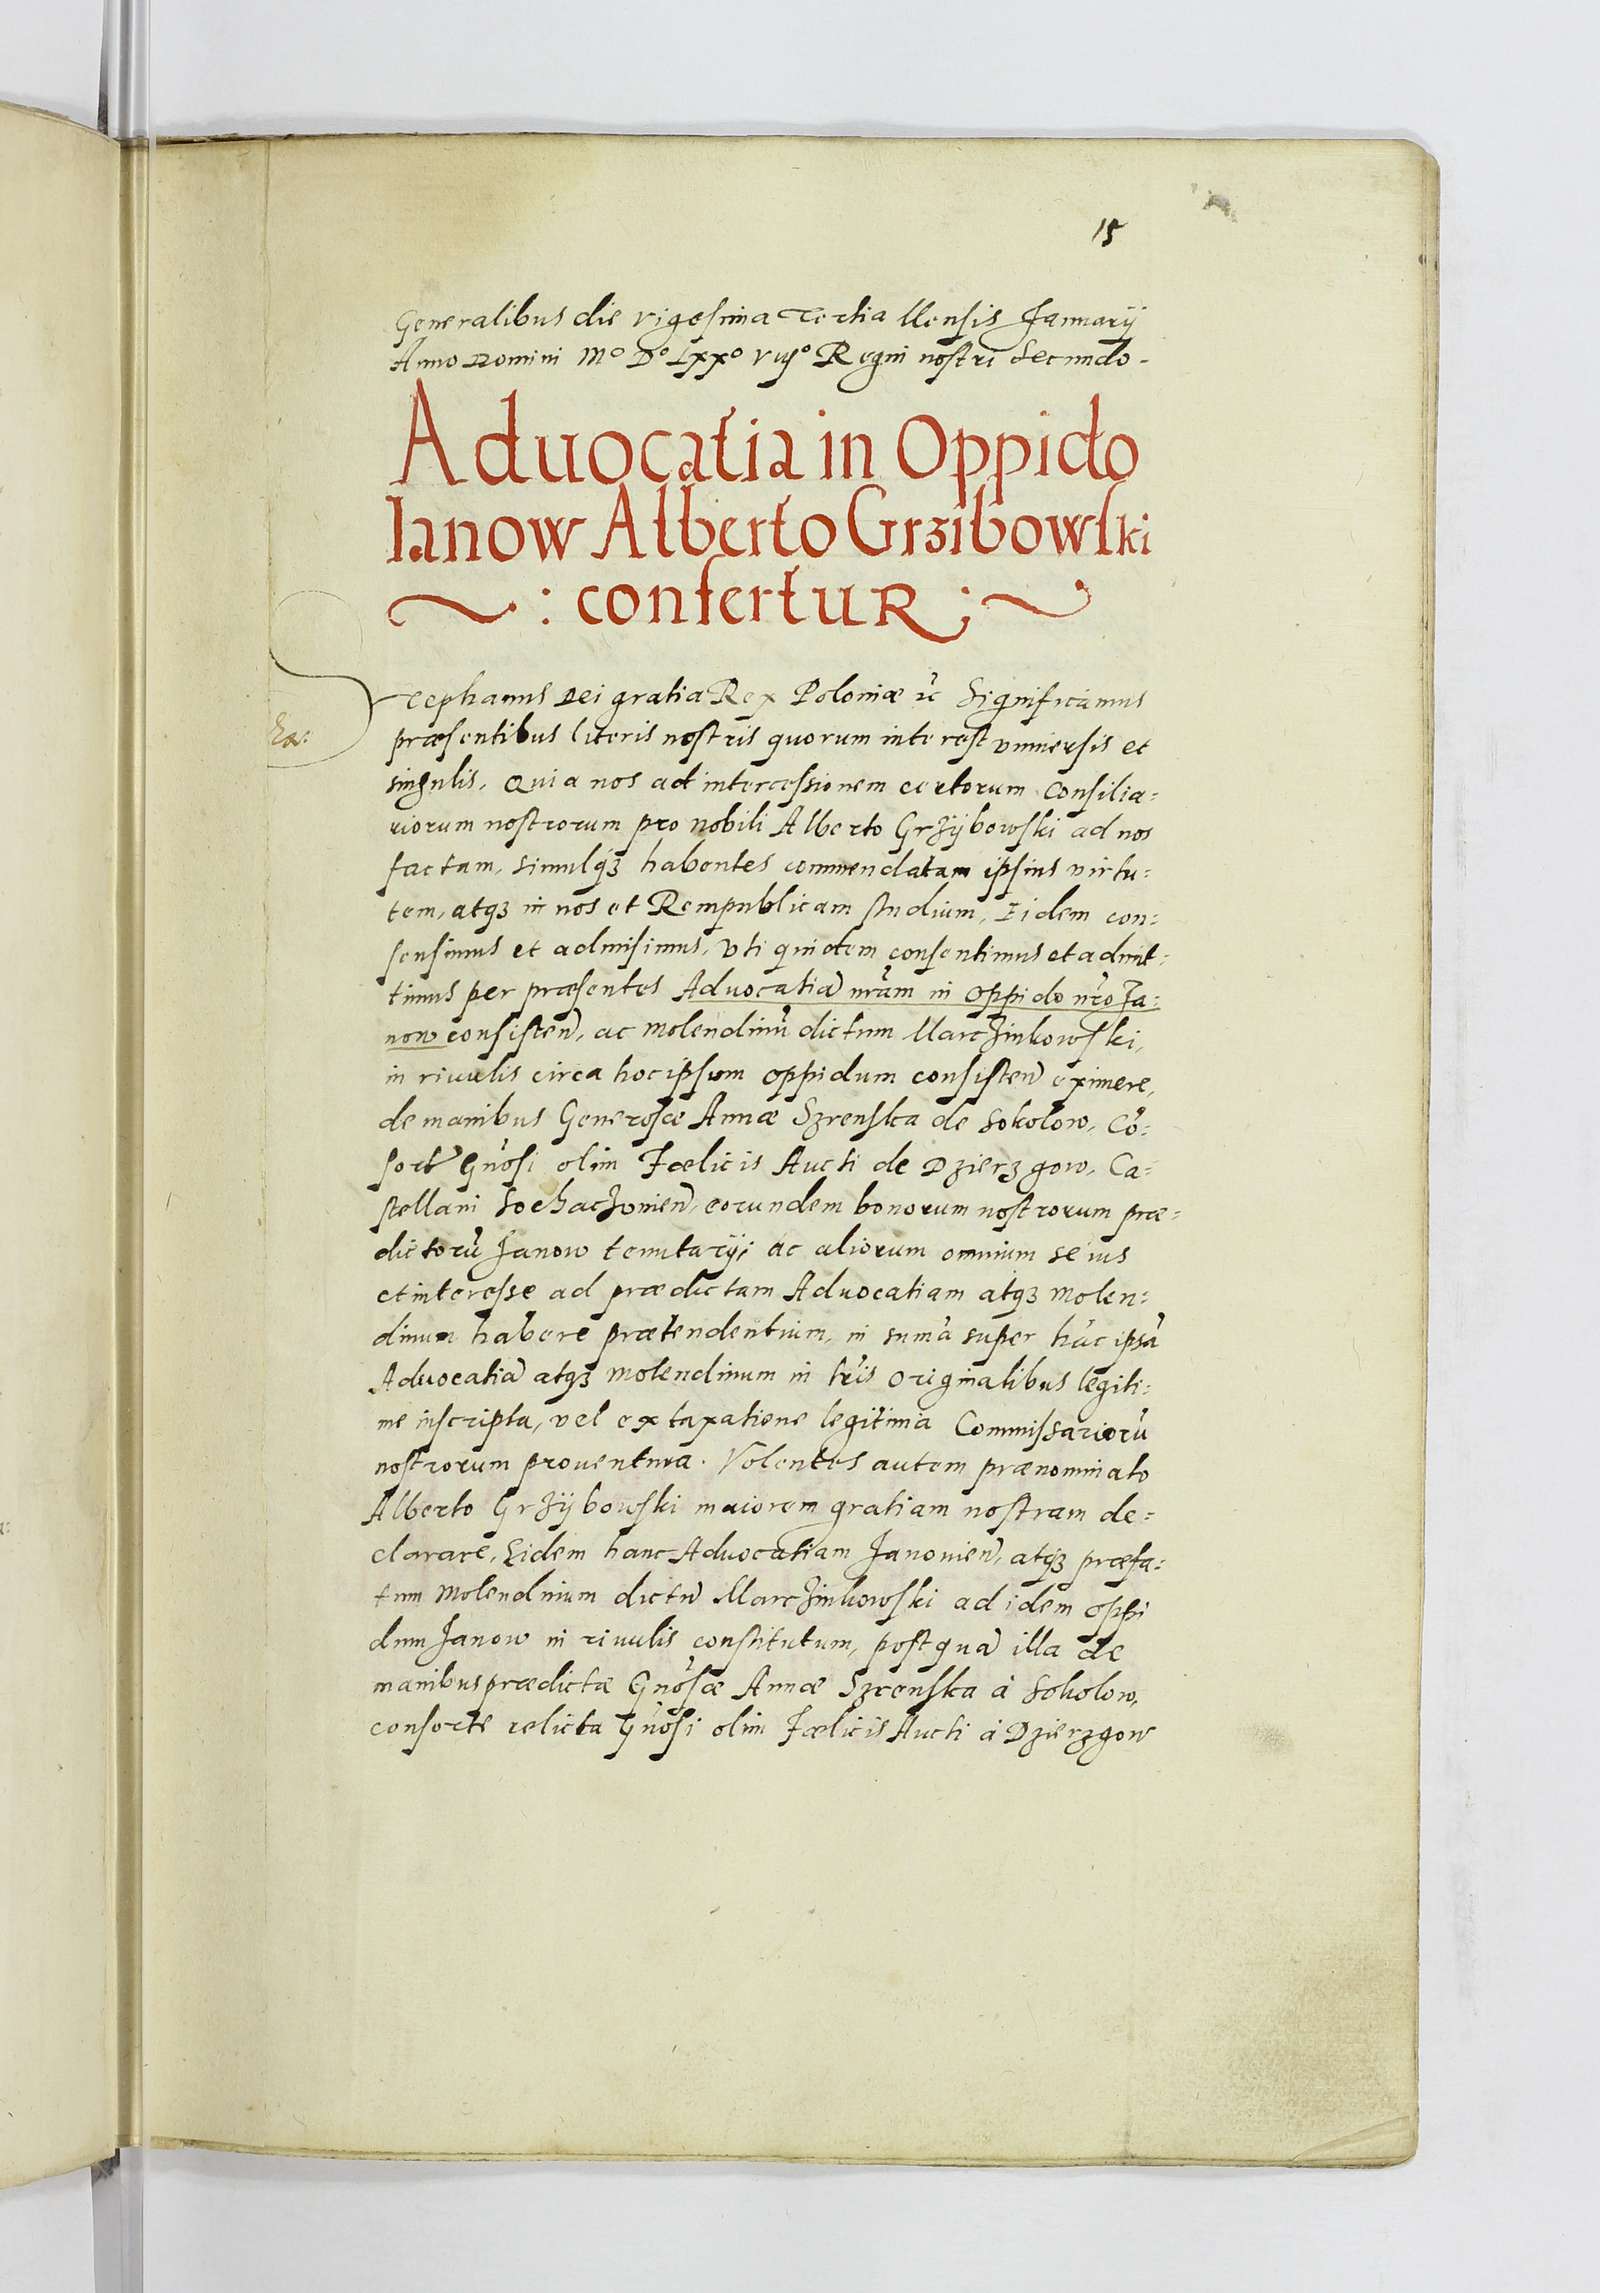 15
Generalibus die vigesima Tertia Mensis Januarij
Anno Domini Mº Dº Lxxº viijº Regni nostri Secundo.
Aduocatia in Oppido
Ianow Alberto Grzibowski
: confertuR ;
Stephanus Dei gratia Rex Poloniæ &c Significamus
præsentibus literis nostris quorum interest vniuersis et
singulis, Quia nos ad intercessionem certorum Consilia=
riorum nostrorum pro nobili Alberto Grzÿbowski ad nos
factam, simulq3 habentes commendatam ipsius virtu=
tem, atq3 in nos et Rempublicam studium, Eidem con=
sensimus et admisimus, vti quidem consentimus et admit=
timus per præsentes Aduocatiã nr̃am in Oppido nr̃o Ja=
now consisteñ, ac molendinũ dictum Marczinkowski,
in riuulis circa hoc ipsum oppidum consisteñ eximere,
de manibus Generosæ Annæ Szrenska de Sokolow, Cõ=
sorte Gñosi olim Fœlicis Aucti de Dzierzgow, Ca=
stellani Sochaczouieñ, eorundem bonorum nostrorum præ=
dictorũ Janow tenutarÿ, ac aliorum omnium se ius
et interesse ad prædictam Aduocatiam atq3 molen=
dinum habere prætendentium, in sum̃a super hãc ipsã
Aduocatiã atq3 molendinum in lr̃is originalibus legiti=
me inscripta, vel ex taxatione legitimia Commissariorũ
nostrorum prouentura. Volentes autem prænominato
Alberto Grzÿbowski maiorem gratiam nostram de=
clarare, Eidem hanc Aduocatiam Janouieñ, atq3 præfa=
tum Molendinum dictũ Marczinkowski ad idem oppi
dum Janow in riuulis constitutum, postquã illa de
manibus prædictæ Gñosæ Annæ Szrenska à Sokolow,
consorte relicta Gñosi olim Fœlicis Aucti à Dzierzgow